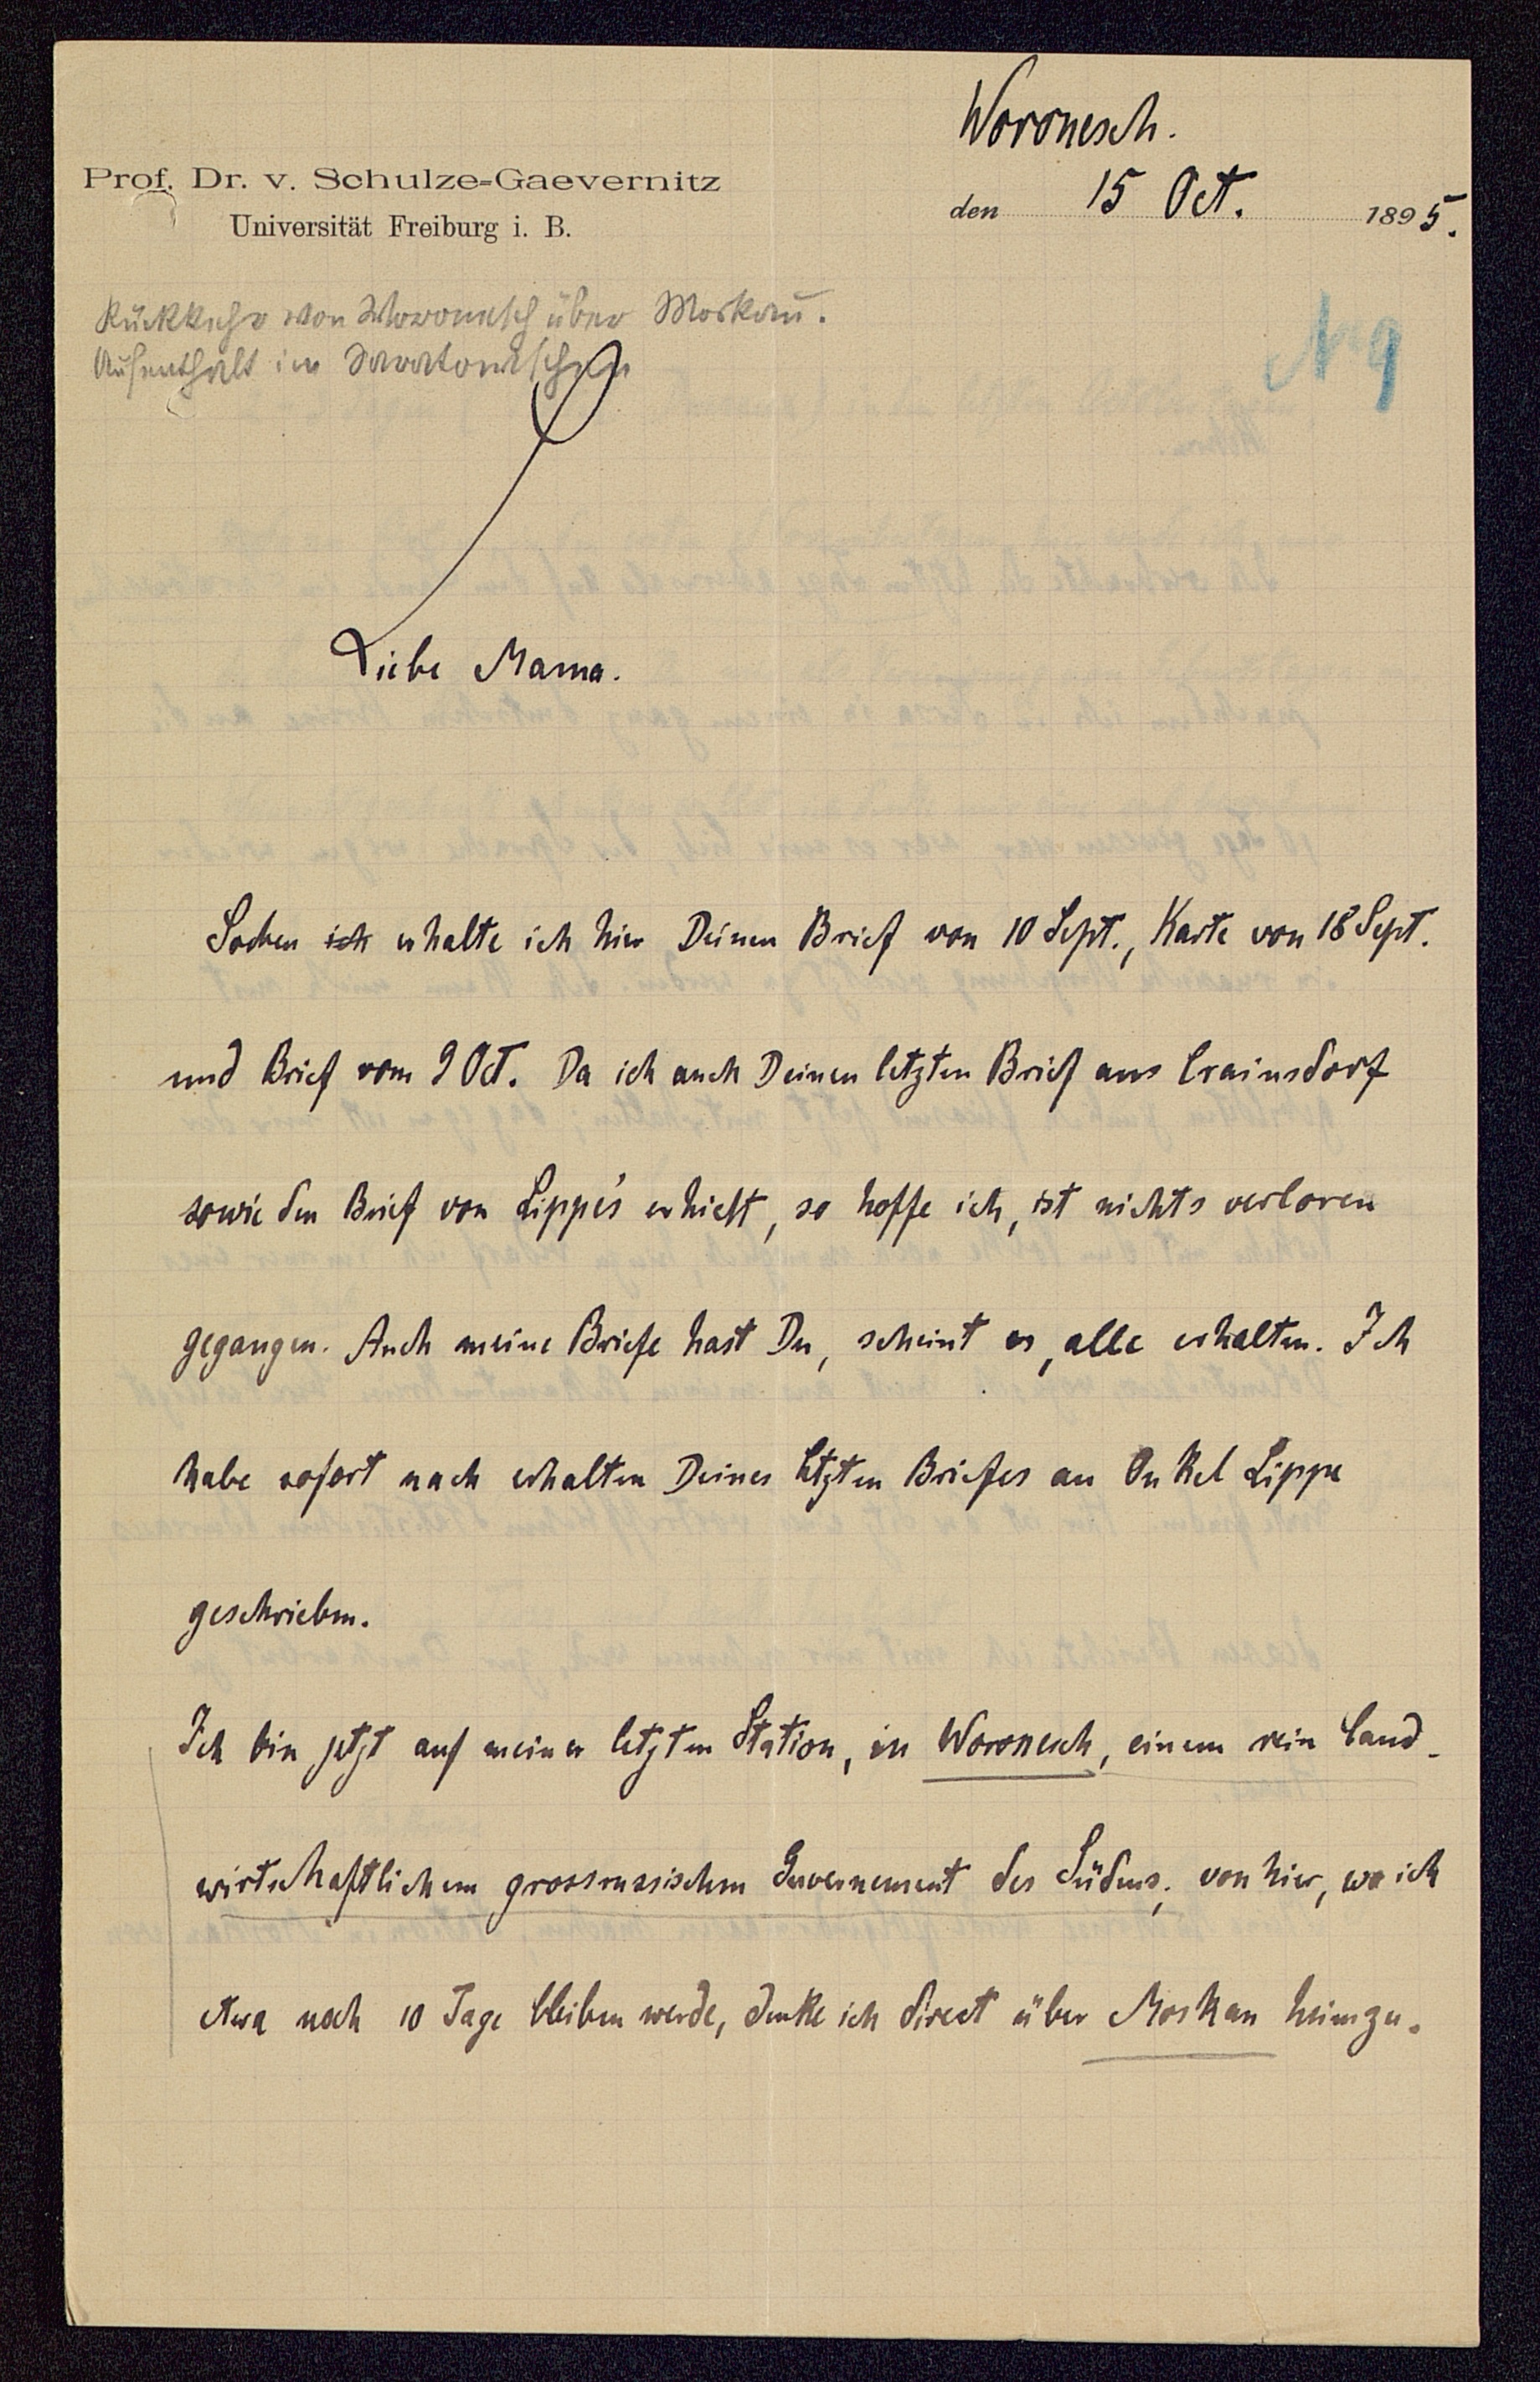 Woronesch.
Prof. Dr. v. Schulze-Gaevernitz
Universität Freiburg i. B.
den 15 Oct. 1895.
Rückkehr von Woronesch über Moskau.
Aufenthalt im
N 9
Liebe Mama.
Soeben ich erhalte ich hier Deinen Brief von 10 Sept., Karte von 18 Sept.
und Brief vom 9 Oct. Da ich auch Deinen letzten Brief aus Crainsdorf
sowie den Brief von Lippe's erhielt, so hoffe ich, ist nichts verloren
gegangen. Auch meine Briefe hast Du, scheint es, alle erhalten. Ich
habe sofort nach erhalten Deines letzten Briefes an Onkel Lippe
geschrieben.
Ich bin jetzt auf meiner letzten Station, in Woronesch, einem rein land-
wirtschaftlichem grossrussischem Guvernement des Südens; von hier, wo ich
etwa noch 10 Tage bleiben werde, denke ich direct über Moskau heimzu-